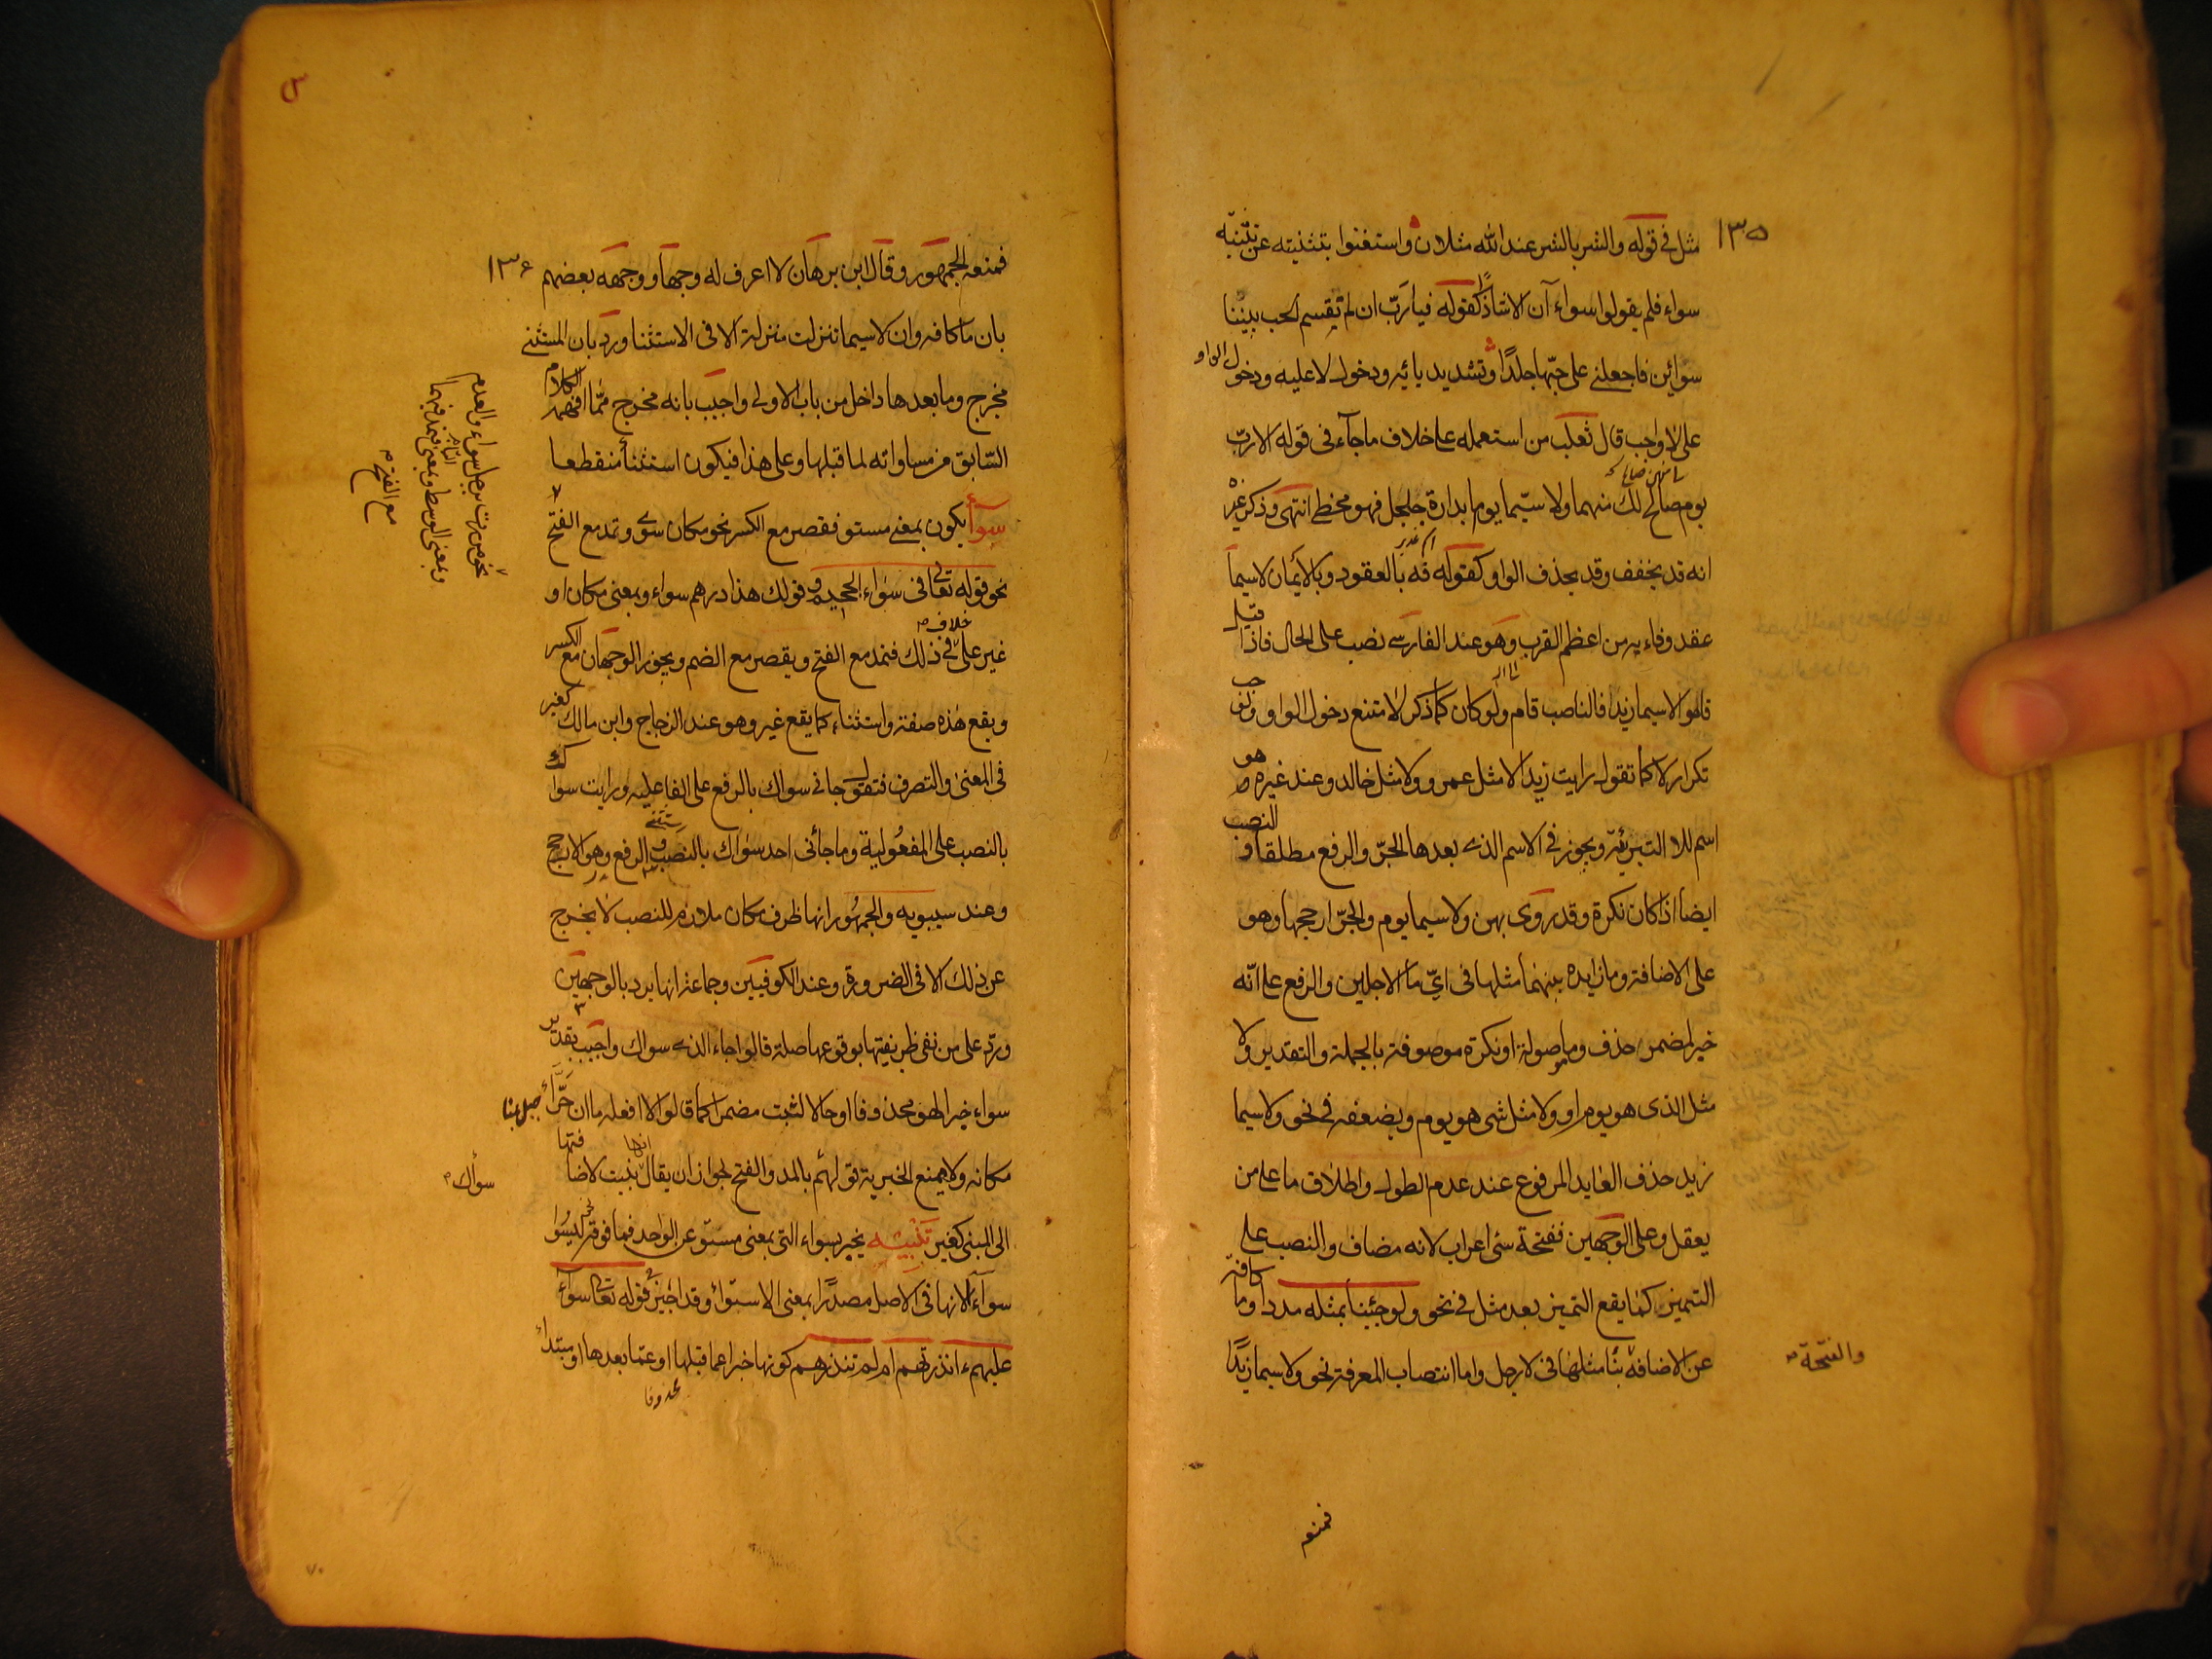 ١٣٥
مثل في قوله والشر بالشر عند الله مثلان واستغنوا بتثنيته عن تثنية
سواء فلم يقولوا سواء آن الا شاذا كقوله فيا رب ان لم تقسم الحب بيننا
سوائين فاجعلني على حبها جلدا وتشديد يائه ودخول لا عليه ودخول الواو
على لا واجب قال ثعلب من استعمله على خلاف ما جاء في قوله الا رب
يوم صالح لك منهما ولا سيما يوم بدارة جلجل فهو مخطئ انتهى وذكر غيره
انه قد يخفف وقد يحذف الواو كقوله فه بالعقود وبالايمان لا سيما
عقد وفاء به من اعظم القرب وهو عند الفارسي نصب على الحال فاذا قيل
قاموا لا سيما زيدا فالناصب قام ولو كان كما ذكر لامتنع دخول الواو ولوجب
تكرار لا كما تقول رايت زيدا لا مثل عمرو ولا مثل خالد وعند غيره هو
اسم للا التبرئة ويجوز في الاسم الذي بعدها الجر والرفع مطلقا و النصب
ايضا اذا كان نكرة وقد روى بهن ولا سيما يوم والجر ارجحها وهو
على الاضافة وما زايده بينهما مثلها في اي ما الاجلين والرفع على انه
خبر لمضمر حذف وما موصولة او نكرة موصوفة بالجملة والتقدير ولا
مثل الذي هو يوم او ولا مثل شي هو يوم ويضعفه في نحو ولا سيما
زيد حذف العايد المرفوع عند عدم الطول واطلاق ما على من
يعقل وعلى الوجهين ففتحة سى اعراب لانه مضاف والنصب على
التميز كما يقع التميز بعد مثل في نحو ولو جئنا بمثله مددا وما كافة
عن الاضافة بنا مثلها في لا رجل واما انتصاب المعرفة نحو ولا سيما زيدا
والفتحة
فمنعه
١٣٦
فمنعه الجمهور وقال ابن برهان لا اعرف له وجها ووجهه بعضهم
بان ما كافه وان لا سيما تنزلت منزلة الا في الاستثنا ورد بان المستثنى
مخرج وما بعدها داخل من باب الاولى واجيب بانه مخرج مما افهمه الكلام
السابق من مساواته لما قبلها وعلى هذا فيكون استثنأ منقطعا
سوآ يكون بمعنى مستو فقصر مع الكسر نحو مكان سوى وتمد مع الفتح
نحو قوله تعالى في سواء الجحيم و قولك هذا درهم سواء وبمعنى مكان او
غير على خلاف في ذلك فتمد مع الفتح ويقصر مع الضم ويجوز الوجهان مع الكسر
ويقع هذه صفة واستثناء كما يقع غير وهو عند الزجاج وابن مالك كغير
في المعنى والتصرف فتقول جاني سواك بالرفع على الفاعليه ورايت سواك
بالنصب على المفعولية وما جائني احد سواك بالنصب و الرفع وهو الارجح
وعند سيبويه والجمهور انها ظرف مكان ملازم للنصب لا يخرج
عن ذلك الا في الضرورة وعند الكوفيين وجماعة انها يرد بالوجهين
ورد على من نفى ظرفيتها بوقوعها صلة قالوا جاء الذي سواك واجيب بتقدير
سواء خبرا لهو محذوفا او حالا لثبت مضمرا كما قالوا لا افعله ما ان حرآء
مكانه ولا يمنع الخبرية قولهم بالمد والفتح لجواز ان يقال انها بنيت لاضافتها
الى المبنى كغير تنبيه يخبر بسواء التي بمعنى مستو عن الواحد فما فوقه نحو ليسوا
سوآء لانها في الاصل مصدرا بمعنى الاستوائ وقد اجيز في قوله تعالى سوآء
عليهم ء انذرتهم ام لم تنذرهم كونها خبرا عما قبلها او عما بعدها او مبتدا
نحو مررت برجل سواء والعدم
وبمعنى الوسط وبمعنى التام فتمد فيهما
مع الفتح
سواك